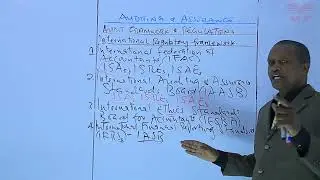 AUDITING & ASSURANCE
AUDIT FRAMEWORK & REGULATIONS
International Regulatory framework
1 International federation of
Accountants (IFAC)
ISAs, ISREs, ISAE
2. International Auditing & Assurance
Standards Board (IAASB)
ISREs ISAEs
3. International Ethics Standards
Board for Accountants (IESBA)
4 International Financial Reporting Standards
(IFRSs) - IASB